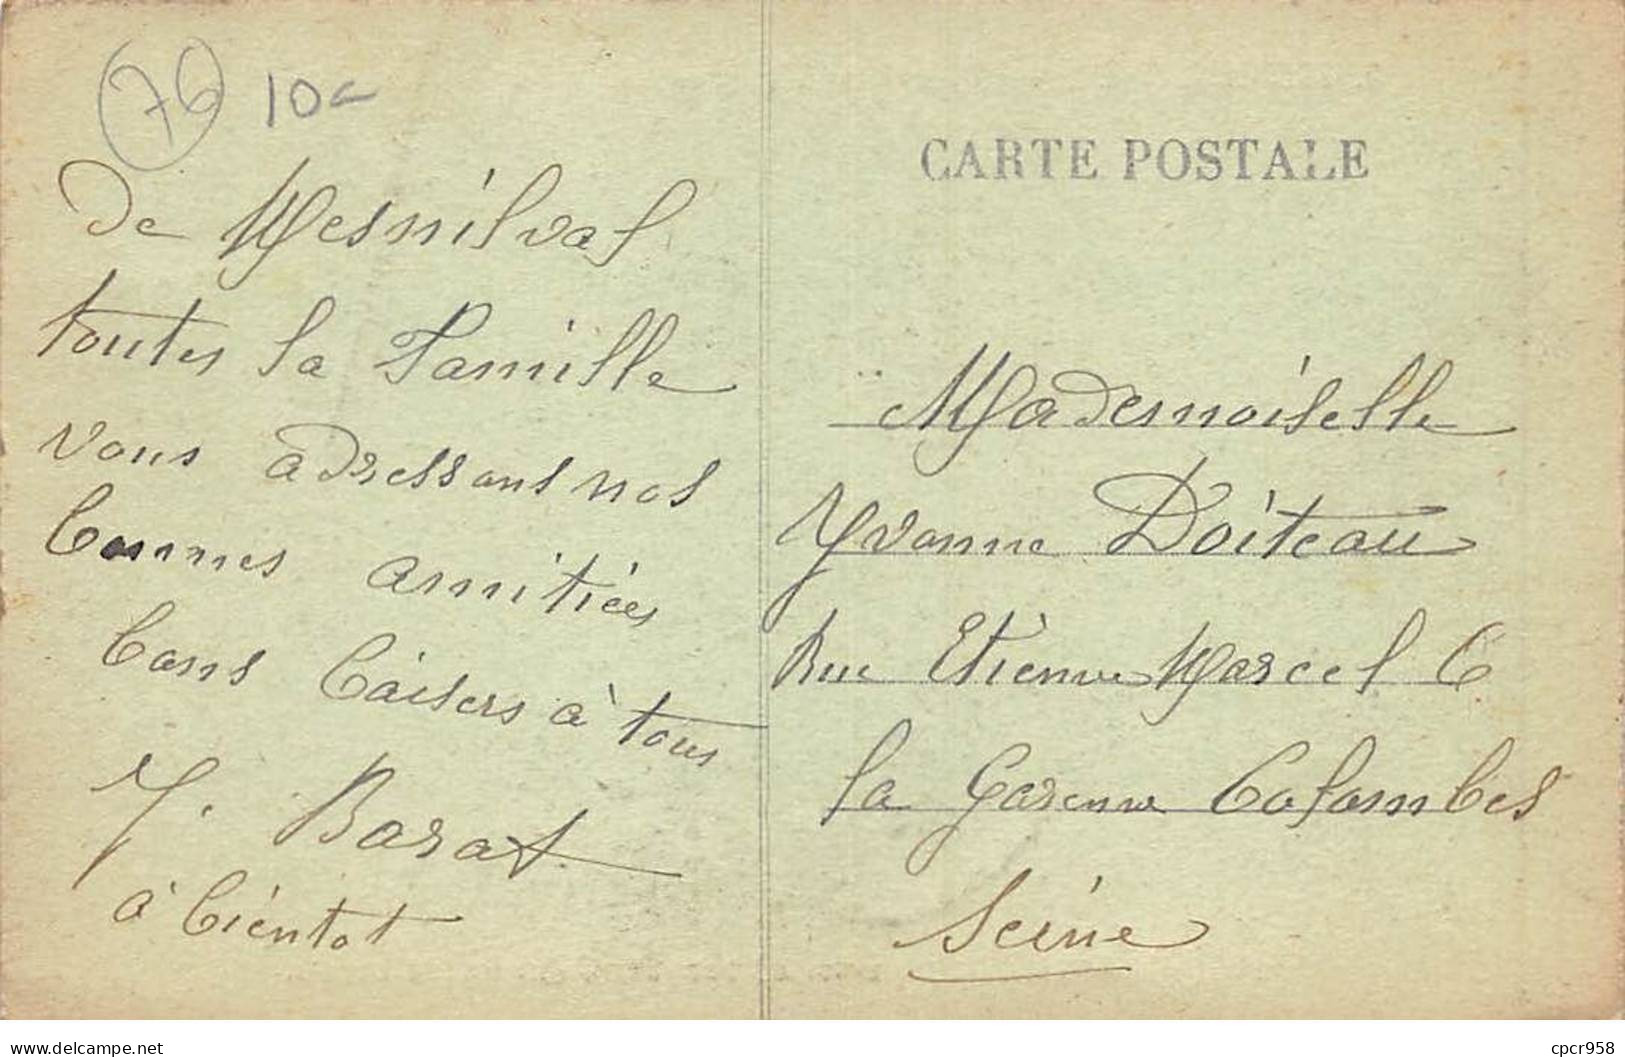 76 10
de Mesnilval
toutes la Famille
vous adressons nos
bonnes amitiées
bons baisers à tous
Barat
à bientot
CARTE POSTALE
Mademoiselle
Yvonne Doiteau
Rue Etienne Marcel 6
la Garenne Colombes
Seine
delcampe.net
cpcr958